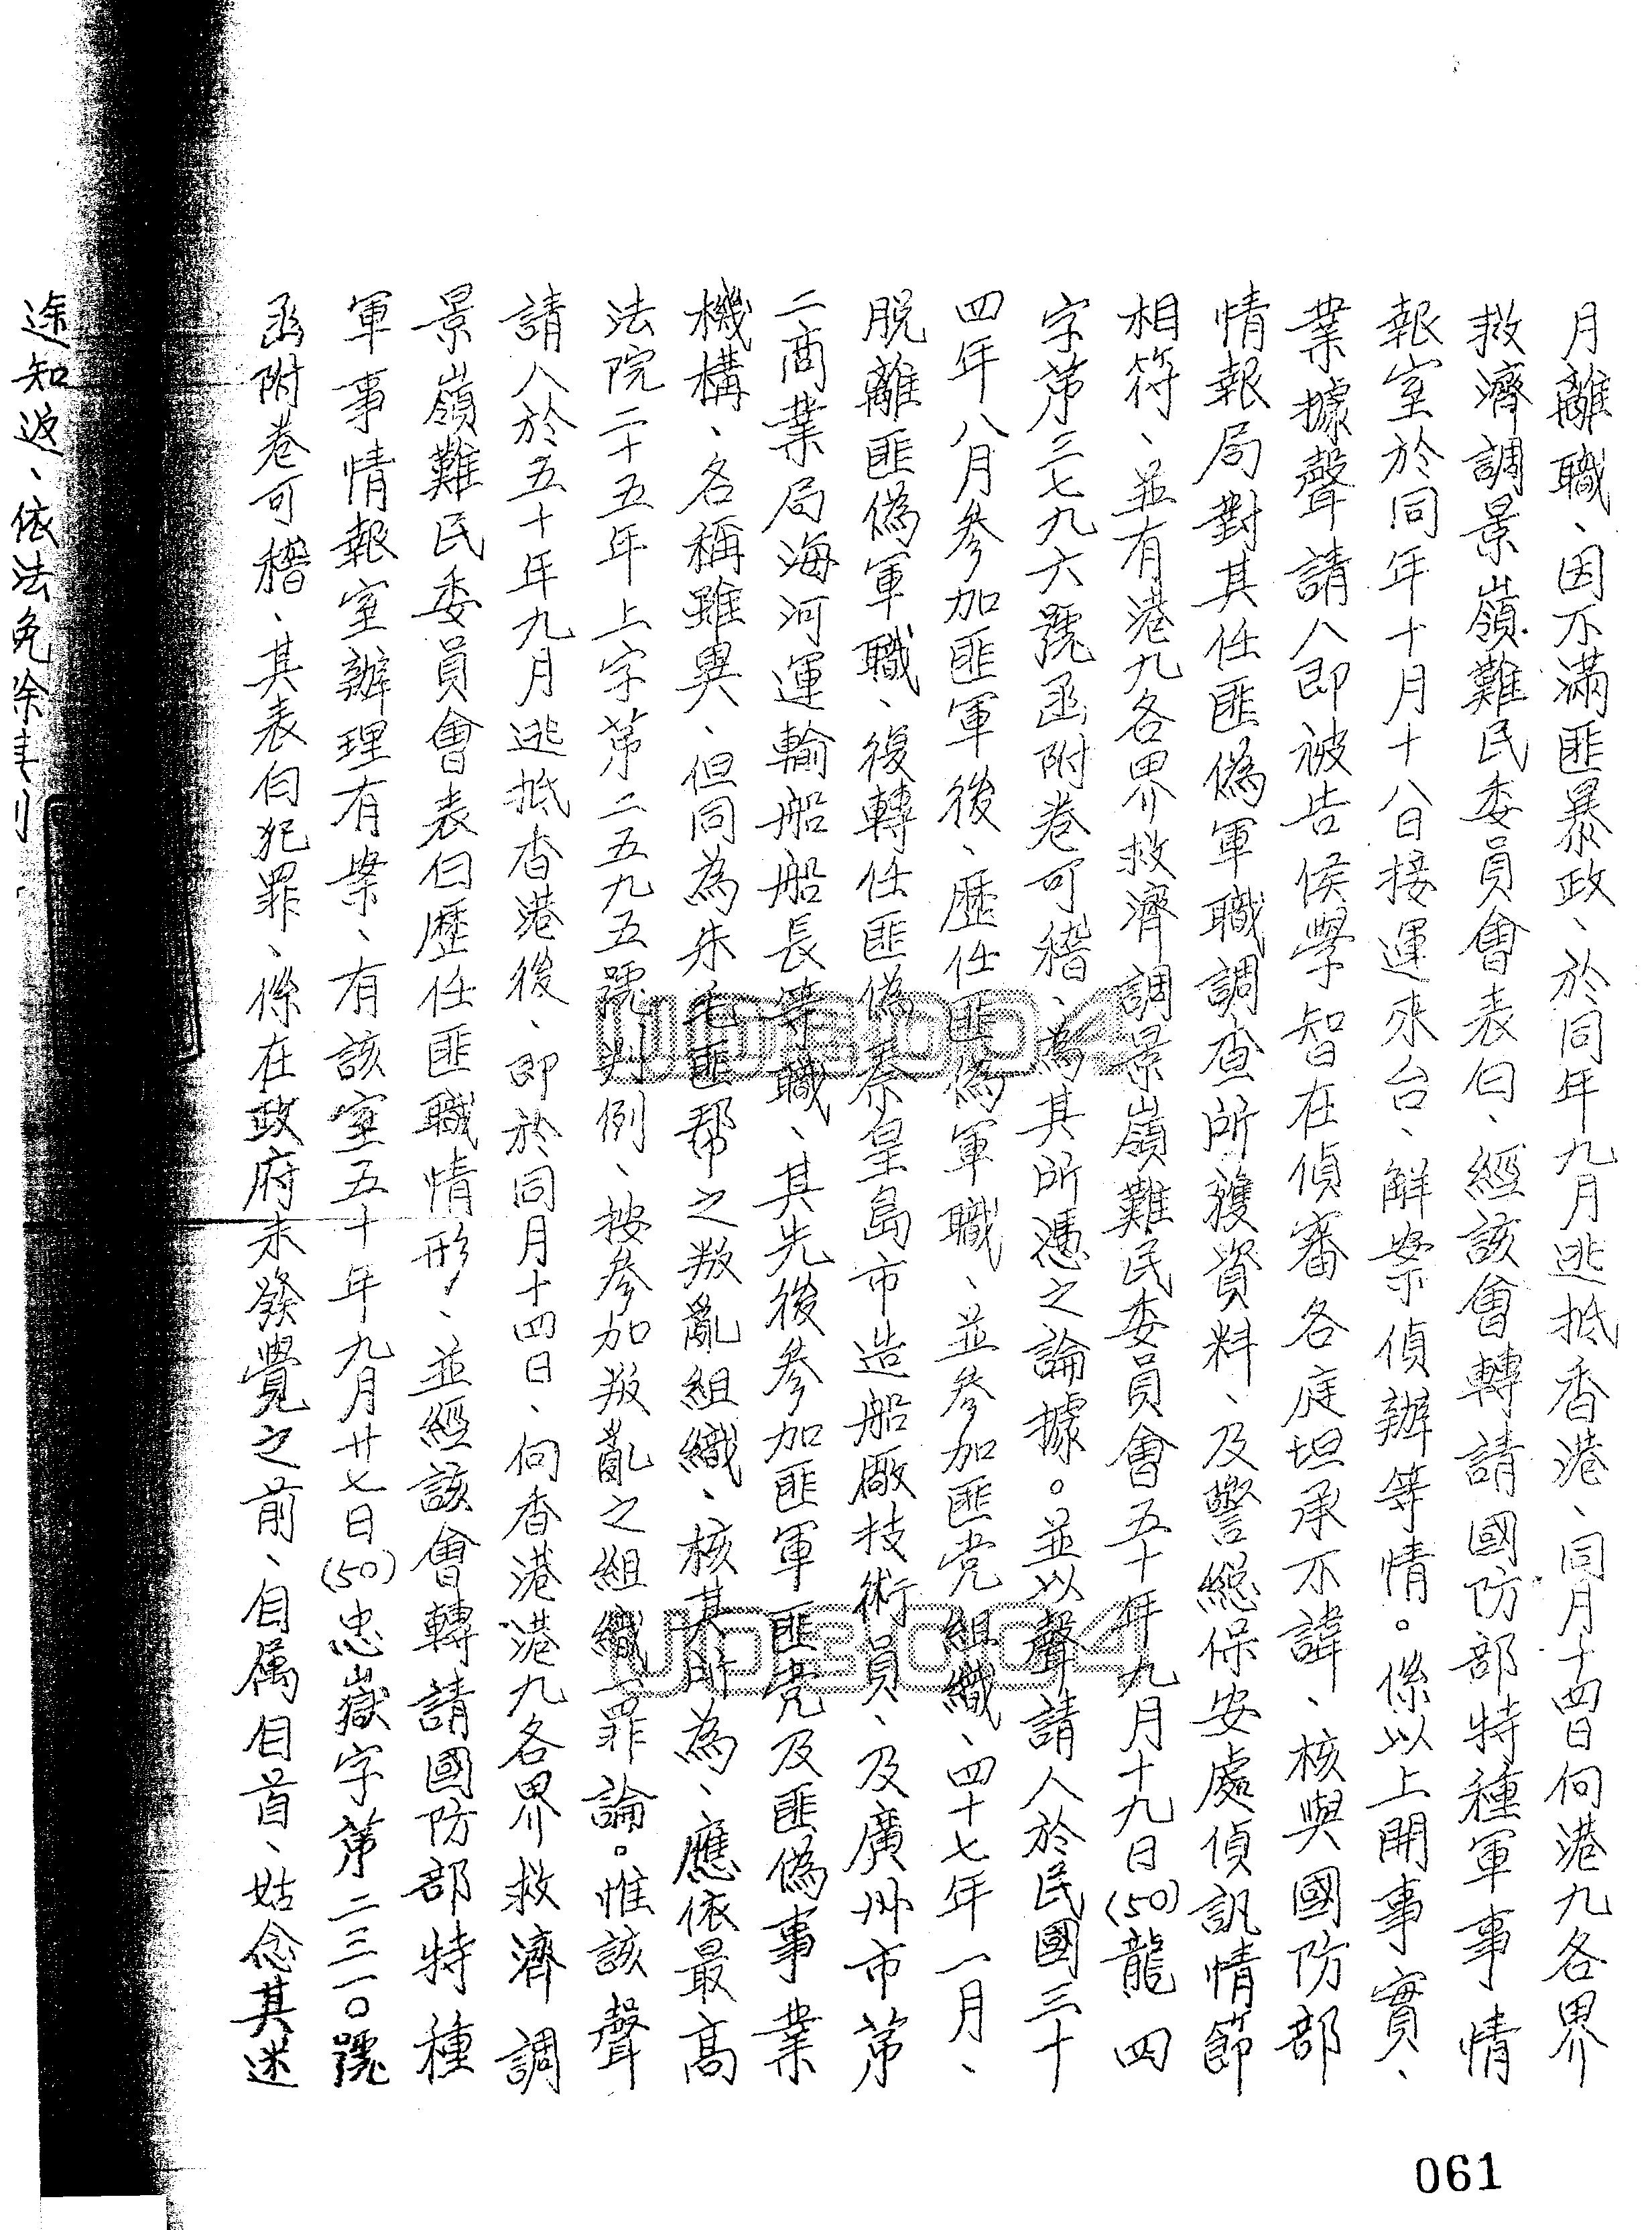 月離職、因不滿匪暴政、於同年九月逃抵香港、同月十四日向港九各界
救濟調景嶺難民委員會表白、經該會轉請國防部特種軍事情
報室於同年十月十八日接運來台、解案偵辦等情。係以上開事實、
業據聲請人即被告侯學智在偵審各庭坦承不諱、核與國防部
情報局對其任匪偽軍職調查所獲資料、及警總保安處偵訊情節
相符、並有港九各界救濟調景嶺難民委員會五十年九月十九日(50)龍四
字第三七九六號函附卷可稽、為其所憑之論據。並以聲請人於民國三十
四年八月參加匪軍後、歷任匪偽軍職、並參加匪党組織、四十七年一月、
脫離匪偽軍職、復轉任匪偽秦皇島市造船廠技術員、及廣州市第
二商業局海河運輸船船長等職、其先後參加匪軍匪党及匪偽事業
機構、各稱雖異、但同為朱毛匪幫之叛亂組織、核其所為、應依最高
法院二十五年上字第二五九五號判例、按參加叛亂之組織罪論。惟該聲
請人於五十年九月逃抵香港後、即於同月十四日、向香港港九各界救濟調
景嶺難民委員會表白歷任匪職情形、並經該會轉請國防部特種
軍事情報室辦理有案、有該室五十年九月廿七日(50)忠嶽字第二三一〇號
函附卷可稽、其表白犯罪、係在政府未發覺之前、自属自首、姑念其迷
途知返、依法免除其刑
UDB004
UDB004
061